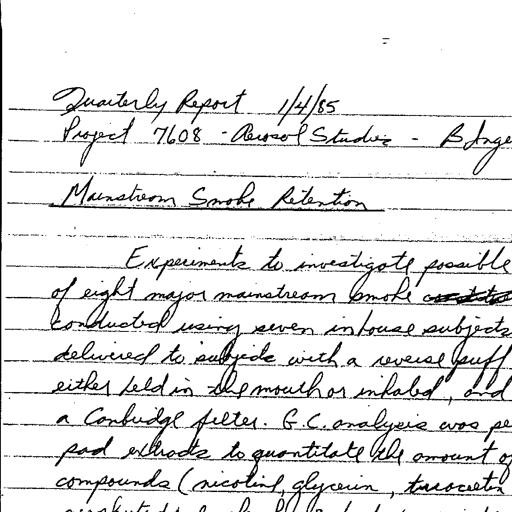 Quarterly Report 1/4/85
Project 7608 - Aerosol Studies - B Inge
Mainstream Smoke Retention
Experiments to investigate possible
of eight major mainstream smoke
conducted using seven inhouse subjects
delivered to subjects with a reverse puff
either held in the mouth or inhaled, and
a Cambridge filter. G.C. analysis was pe
pad extracts to quantitate the amount of
compounds (nicotine, glycerin, triacetin